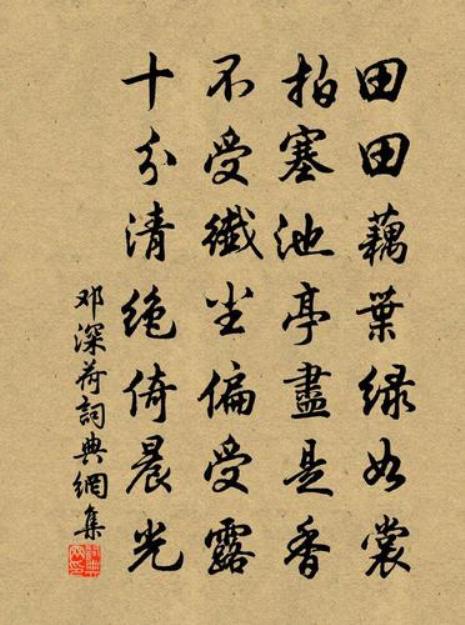 田田藕葉緑如裳
拍塞池亭盡是香
不受纖尘偏受露
十分清绝倚晨光
邓深荷詞典網集